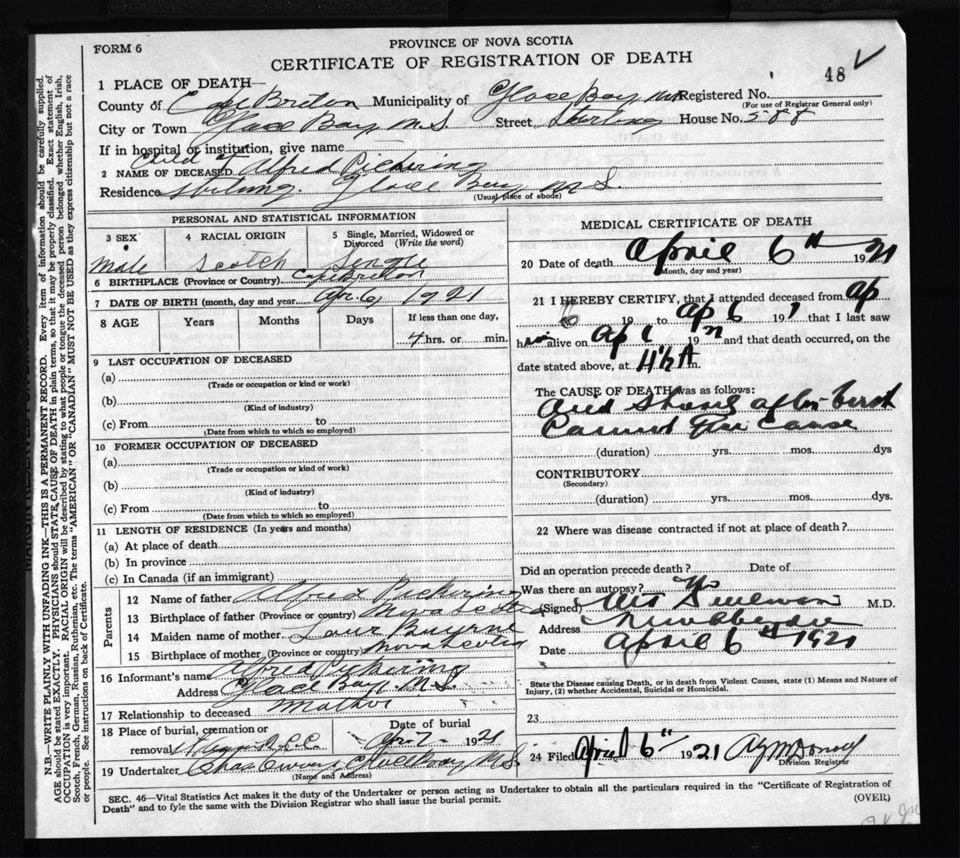 FORM 6
PROVINCE OF NOVA SCOTIA
CERTIFICATE OF REGISTRATION OF DEATH
48
1 PLACE OF DEATH
County of Cape Breton Municipality of Glace Bay Registered No.
(For use of Registrar General only)
City or Town Glace Bay N.S. Street Sterling House No. 588
If in hospital or institution, give name
2 NAME OF DECEASED Child of Alfred Pickering
Residence Sterling. Glace Bay N.S.
(Usual place of abode)
PERSONAL AND STATISTICAL INFORMATION
3 SEX
Male
4 RACIAL ORIGIN
Scotch
5 Single, Married, Widowed or Divorced (Write the word)
Single
6 BIRTHPLACE (Province or Country) Cape Breton
7 DATE OF BIRTH (month, day and year) Apr 6 1921
8 AGE Years Months Days If less than one day,
4 hrs. or min.
9 LAST OCCUPATION OF DECEASED
(a)
(Trade or occupation or kind or work)
(b)
(Kind of industry)
(c) From to
(Date from which to which so employed)
10 FORMER OCCUPATION OF DECEASED
(a)
(Trade or occupation or kind of work)
(b)
(Kind of industry)
(c) From to
(Date from which to which so employed)
11 LENGTH OF RESIDENCE (In years and months)
(a) At place of death
(b) In province
(c) In Canada (if an immigrant)
Parents
12 Name of father Alfred Pickering
13 Birthplace of father (Province or country) Nova Scotia
14 Maiden name of mother
15 Birthplace of mother (Province or country) Nova Scotia
16 Informant's name Alfred Pickering
Address Glace Bay. N.S.
17 Relationship to deceased
18 Place of burial, cremation or removal
Date of burial
Apr 7 1921
19 Undertaker Chas Owens Glace Bay N.S.
(Name and Address)
MEDICAL CERTIFICATE OF DEATH
20 Date of death April 6th 1921
(Month, day and year)
21 I HEREBY CERTIFY, that I attended deceased from ap
6 19 to ap 6 191 that I last saw
him alive on ap 19 and that death occurred, on the
date stated above, at m.
The CAUSE OF DEATH was as follows:
after birth
Cannot give cause
(duration) yrs. mos. dys
CONTRIBUTORY
(Secondary)
(duration) yrs. mos. dys.
22 Where was disease contracted if not at place of death?
Did an operation precede death? Date of
Was there an autopsy? No
(Signed) M.D.
Address
Date April 6th 1921
State the Disease causing Death, or in death from Violent Causes, state (1) Means and Nature of
Injury, (2) whether Accidental, Suicidal or Homicidal.
23
24 Filed April 6th 1921
Division Registrar
SEC. 46—Vital Statistics Act makes it the duty of the Undertaker or person acting as Undertaker to obtain all the particulars required in the "Certificate of Registration of
Death" and to fyle the same with the Division Registrar who shall issue the burial permit.
(OVER)
N.B.—WRITE PLAINLY WITH UNFADING INK—THIS IS A PERMANENT RECORD. Every item of information should be carefully supplied.
AGE should be stated EXACTLY. PHYSICIANS should STATE CAUSE OF DEATH in plain terms, so that it may be properly classified. Exact statement of
OCCUPATION is very important. RACIAL ORIGIN will be described by stating to what people or tongue the deceased person belonged whether English, Irish,
Scotch, French, German, Russian, Ruthenian, etc. The terms "AMERICAN" OR "CANADIAN" MUST NOT BE USED as they express citizenship but not a race
or people. See instructions on back of Certificate.